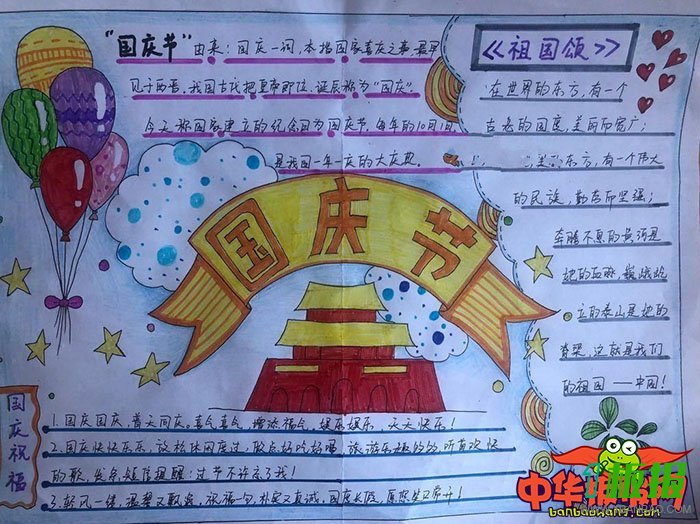 "国庆节"由来：国庆一词，本指国家喜庆之事，最早
见于西晋。我国古代把皇帝即位、诞辰称为"国庆"。
今天称国家建立的纪念日为国庆节，每年的10月1日
是我国一年一度的大庆典。
《祖国颂》
在世界的东方，有一个
古老的国度，美丽而宽广；
美的东方，有一个伟大
的民族，勤劳而坚强；
奔腾不息的黄河是
她的血脉，巍峨屹
立的泰山是她的
脊梁，这就是我们
的祖国——中国！
国庆节
国庆祝福
1.国庆国庆，普天同庆。喜气喜气，增添福气，娱乐娱乐，天天快乐！
2.国庆快快乐乐，放松休闲度过，吃点好吃好喝，旅游乐趣多多，听首欢快
的歌，发条短信提醒：过节不许忘了我！
3.轻风一缕，温馨又飘逸，祝福一句，朴实又真诚，国庆长假，愿您开
中华
报
banbaowang.com